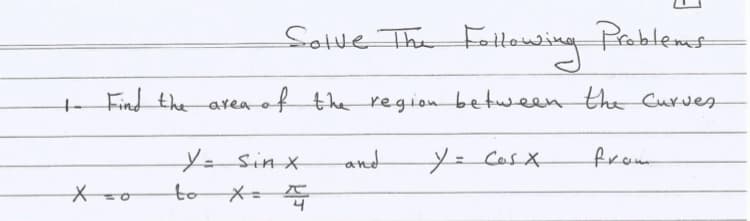 Solve The Following Problems
1- Find the area of the region between the curves
y = sin x and y = cos x from
x = 0 to x = π/4